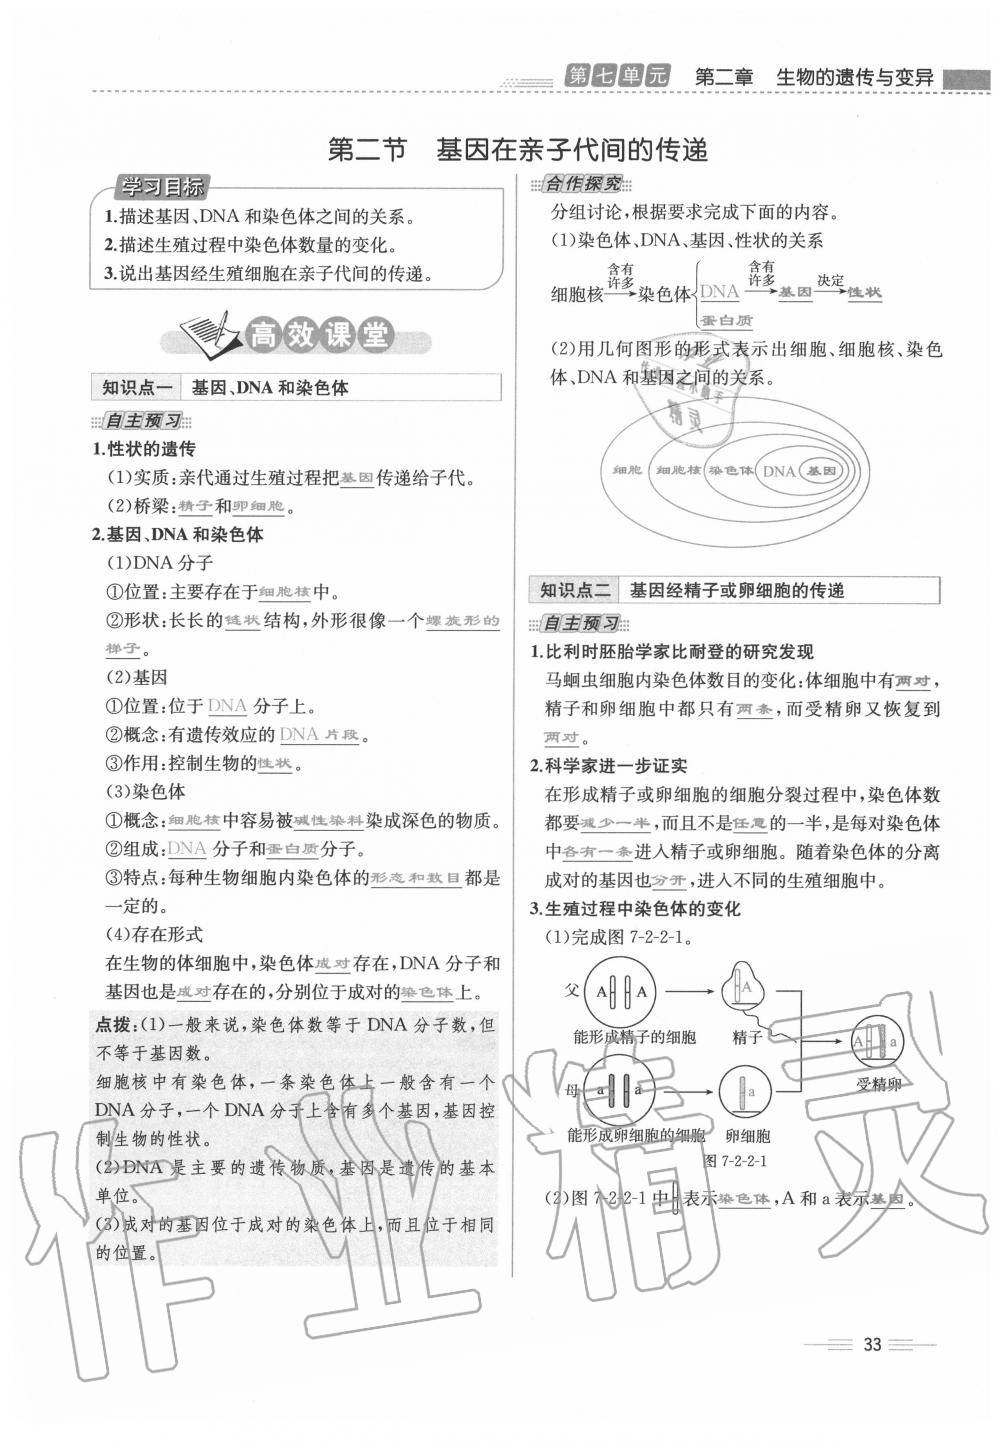 第七单元 第二章 生物的遗传与变异
第二节 基因在亲子代间的传递
学习目标
1.描述基因、DNA 和染色体之间的关系。
2.描述生殖过程中染色体数量的变化。
3.说出基因经生殖细胞在亲子代间的传递。
高效课堂
知识点一 基因、DNA 和染色体
自主预习
1.性状的遗传
(1)实质:亲代通过生殖过程把基因传递给子代。
(2)桥梁:精子和卵细胞。
2.基因、DNA 和染色体
(1)DNA 分子
①位置:主要存在于细胞核中。
②形状:长长的链状结构,外形很像一个螺旋形的
梯子。
(2)基因
①位置:位于 DNA 分子上。
②概念:有遗传效应的 DNA 片段。
③作用:控制生物的性状。
(3)染色体
①概念:细胞核中容易被碱性染料染成深色的物质。
②组成:DNA 分子和蛋白质分子。
③特点:每种生物细胞内染色体的形态和数目都是
一定的。
(4)存在形式
在生物的体细胞中,染色体成对存在,DNA 分子和
基因也是成对存在的,分别位于成对的染色体上。
点拨:(1)一般来说,染色体数等于 DNA 分子数,但
不等于基因数。
细胞核中有染色体,一条染色体上一般含有一个
DNA 分子,一个 DNA 分子上含有多个基因,基因控
制生物的性状。
(2)DNA 是主要的遗传物质,基因是遗传的基本
单位。
(3)成对的基因位于成对的染色体上,而且位于相同
的位置。
合作探究
分组讨论,根据要求完成下面的内容。
(1)染色体、DNA、基因、性状的关系
含有 含有
许多 许多 决定
细胞核 染色体 DNA 基因 性状
蛋白质
(2)用几何图形的形式表示出细胞、细胞核、染色
体、DNA 和基因之间的关系。
细胞 细胞核 染色体 DNA 基因
知识点二 基因经精子或卵细胞的传递
自主预习
1.比利时胚胎学家比耐登的研究发现
马蛔虫细胞内染色体数目的变化:体细胞中有两对,
精子和卵细胞中都只有两条,而受精卵又恢复到
两对。
2.科学家进一步证实
在形成精子或卵细胞的细胞分裂过程中,染色体数
都要减少一半,而且不是任意的一半,是每对染色体
中各有一条进入精子或卵细胞。随着染色体的分离
成对的基因也分开,进入不同的生殖细胞中。
3.生殖过程中染色体的变化
(1)完成图 7-2-2-1。
父 A A A
能形成精子的细胞 精子
A a
受精卵
母 a a a
能形成卵细胞的细胞 卵细胞
图 7-2-2-1
(2)图 7-2-2-1 中 表示染色体,A 和 a 表示基因。
33
作业精灵
精灵